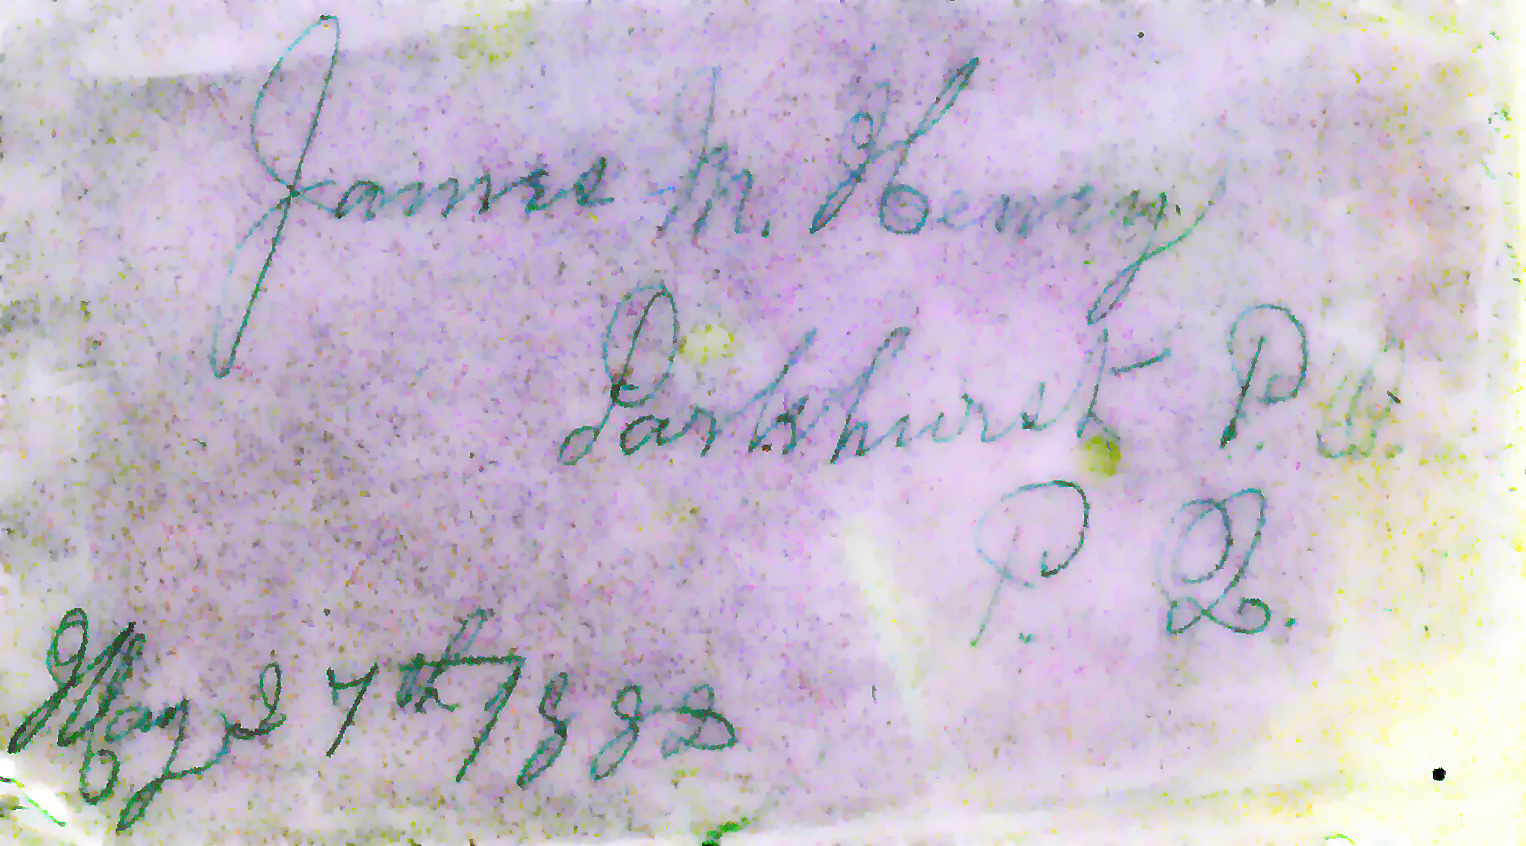 James M. Henry
Parkhurst P. O.
P. Q.
May 27th 1882